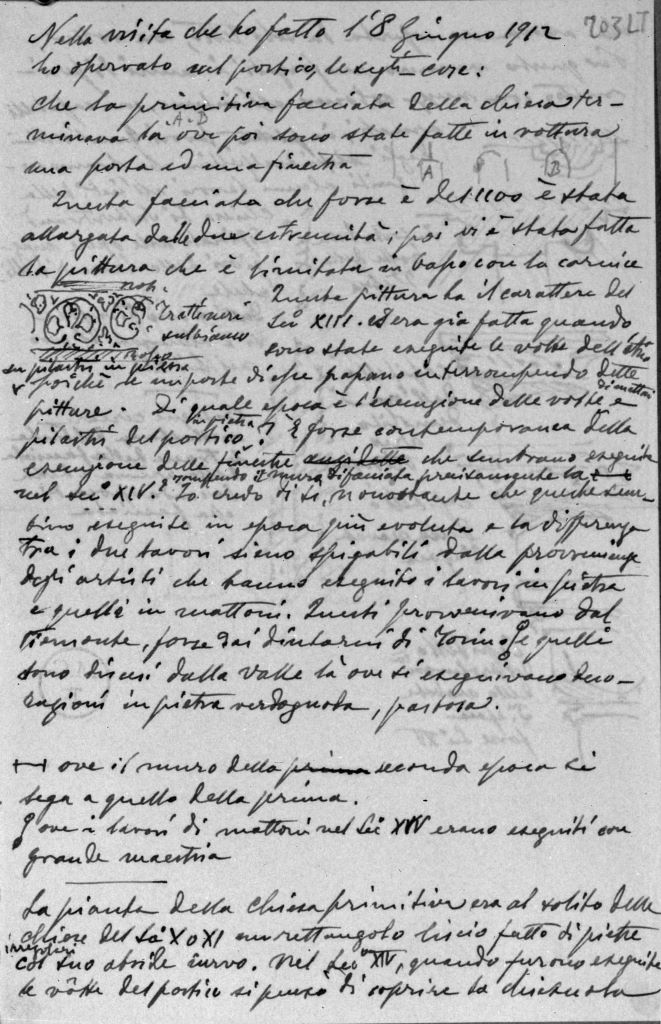 Nella visita che ho fatto l'8 Giugno 1912 203 LT
ho osservato sul portico, le segti cose:
che la primitiva facciata della chiesa ter-
minava là ove poi sono state fatte in rottura
A - B
una porta ed una finestra A B
Questa facciata che forse è del 1100 è stata
allargata dalle due estremità; poi vi è stata fatta
la pittura che è limitata in basso con la cornice
Questa pittura ha il carattere del
Trattini
sul bianco
Sec° XIII. era già fatta quando
rosso
sono state eseguite le volte dell'atrio
su pilastri in pietra
poichè le imposte di esse passano interrompendo dette
di mattoni
pitture. Di quale epoca è l'esecuzione delle volte e
in pietra
pilastri del portico? È forse contemporanea della
esecuzione delle finestre che sembrano eseguite
di facciata precisamente la
nel Sec° XIV. Io credo di si, nonostante che queste sem-
brino eseguite in epoca più evoluta e la differenza
fra i due lavori sieno spiegabili dalla provenienza
degli artisti che hanno eseguito i lavori in pietra
e quelli in mattoni. Questi provenivano dal
Piemonte, forse dai dintorni di Torino e quelli
sono discesi dalla Valle là ove si eseguivano deco-
razioni in pietra verdognola, pastosa.
ove il muro della prima seconda epoca si
lega a quello della prima.
ove i lavori di mattoni nel Sec XIV erano eseguiti con
grande maestria
La pianta della chiesa primitiva era al solito delle
chiese del Sec° X o XI un rettangolo liscio fatto di pietre
irregolari
col suo abside curvo. Nel Sec° XIV, quando furono eseguite
le vôlte del portico si pensò di coprire la chiesuola